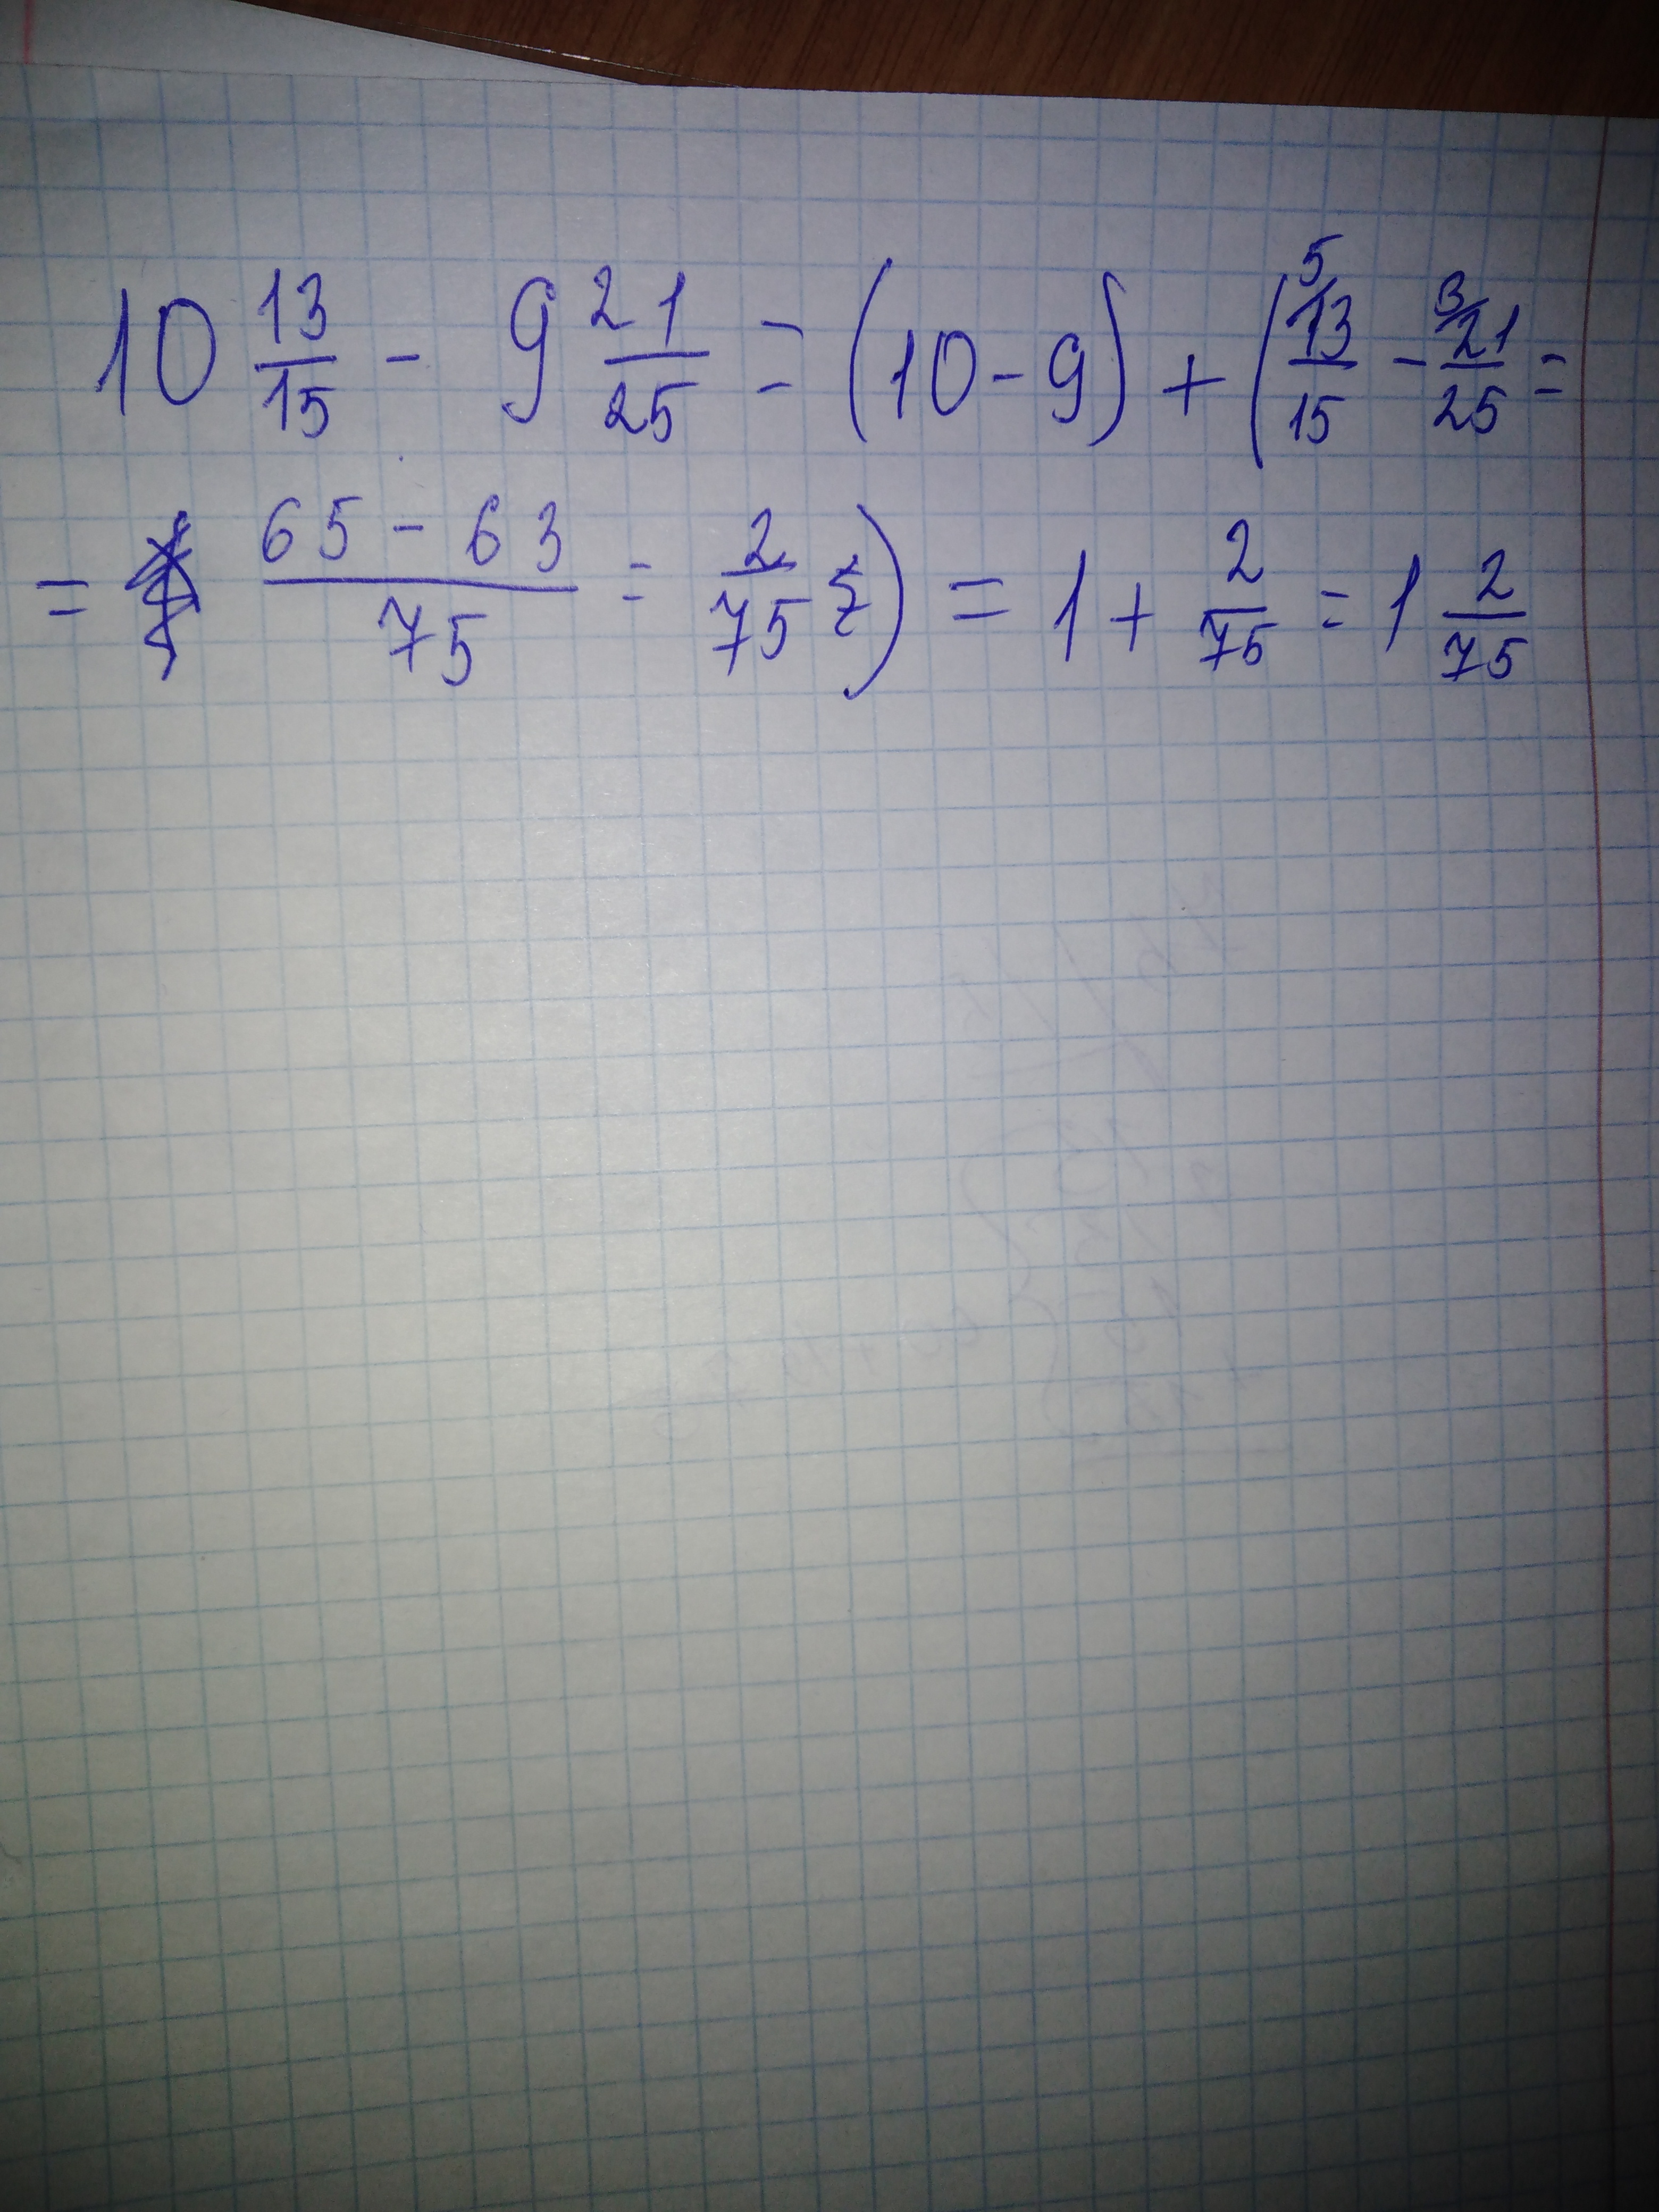 10 13/15 - 9 21/25 = (10 - 9) + ( 5/ 13/15 - 3/ 21/25 =
= (65 - 63)/75 = 2/75 ) = 1 + 2/75 = 1 2/75